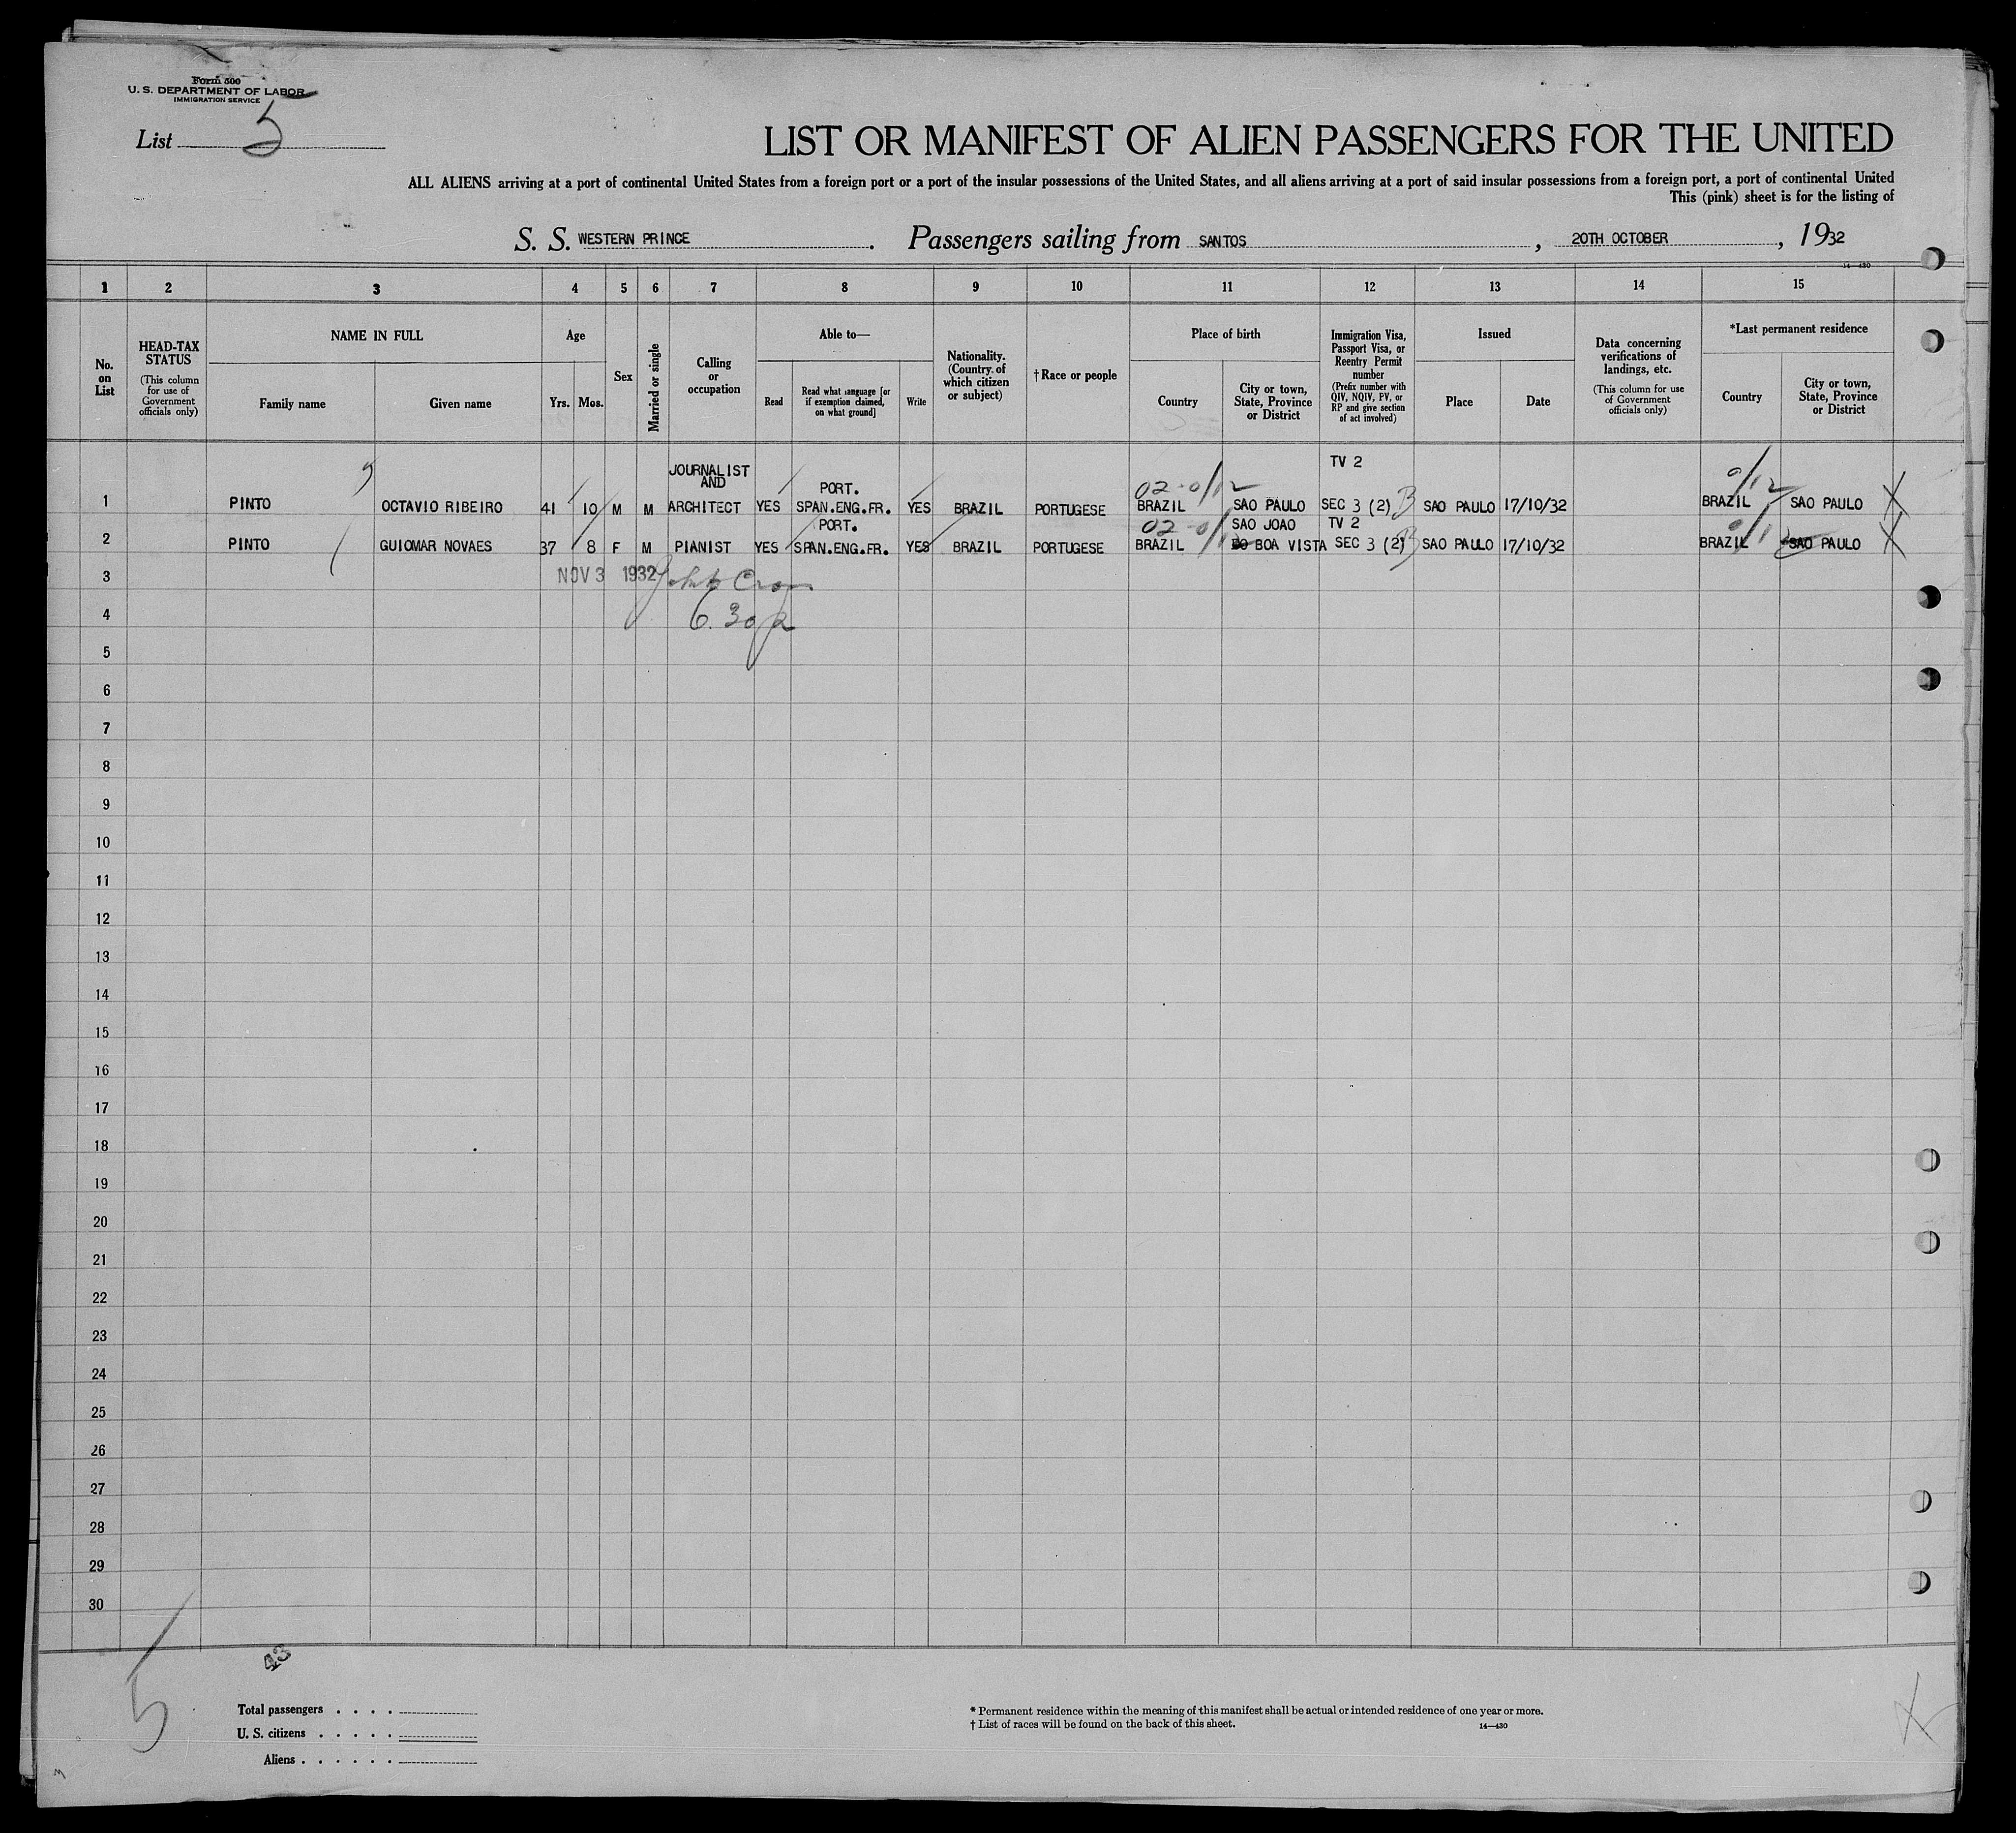 Form 500
U. S. DEPARTMENT OF LABOR
IMMIGRATION SERVICE
List 5
LIST OR MANIFEST OF ALIEN PASSENGERS FOR THE UNITED
ALL ALIENS arriving at a port of continental United States from a foreign port or a port of the insular possessions of the United States, and all aliens arriving at a port of said insular possessions from a foreign port, a port of continental United
This (pink) sheet is for the listing of
S. S. WESTERN PRINCE . Passengers sailing from SANTOS , 20TH OCTOBER , 1932
14—430
1 2 3 4 5 6 7 8 9 10 11 12 13 14 15
No. on List
HEAD-TAX STATUS
(This column for use of Government officials only)
NAME IN FULL
Family name
Given name
Age
Yrs. Mos.
Sex
Married or single
Calling or occupation
Able to—
Read
Read what language [or if exemption claimed, on what ground]
Write
Nationality. (Country of which citizen or subject)
† Race or people
Place of birth
Country
City or town, State, Province or District
Immigration Visa, Passport Visa, or Reentry Permit number
(Prefix number with QIV, NQIV, PV, or RP and give section of act involved)
Issued
Place
Date
Data concerning verifications of landings, etc.
(This column for use of Government officials only)
*Last permanent residence
Country
City or town, State, Province or District
JOURNALIST TV 2
AND PORT. 02-0/12 0/12
1 PINTO OCTAVIO RIBEIRO 41 10 M M ARCHITECT YES SPAN.ENG.FR. YES BRAZIL PORTUGESE BRAZIL SAO PAULO SEC 3 (2) B SAO PAULO 17/10/32 BRAZIL SAO PAULO X
PORT. 02-0/12 SAO JOAO TV 2
2 PINTO GUIOMAR NOVAES 37 8 F M PIANIST YES SPAN.ENG.FR. YES BRAZIL PORTUGESE BRAZIL DO BOA VISTA SEC 3 (2) B SAO PAULO 17/10/32 BRAZIL 0/12 SAO PAULO X
3 NOV 3 1932
4 6.30 p
5
6
7
8
9
10
11
12
13
14
15
16
17
18
19
20
21
22
23
24
25
26
27
28
29
30
5
43
Total passengers . . . .
U. S. citizens . . . . .
Aliens . . . . . .
* Permanent residence within the meaning of this manifest shall be actual or intended residence of one year or more.
† List of races will be found on the back of this sheet.
14—430
X
3